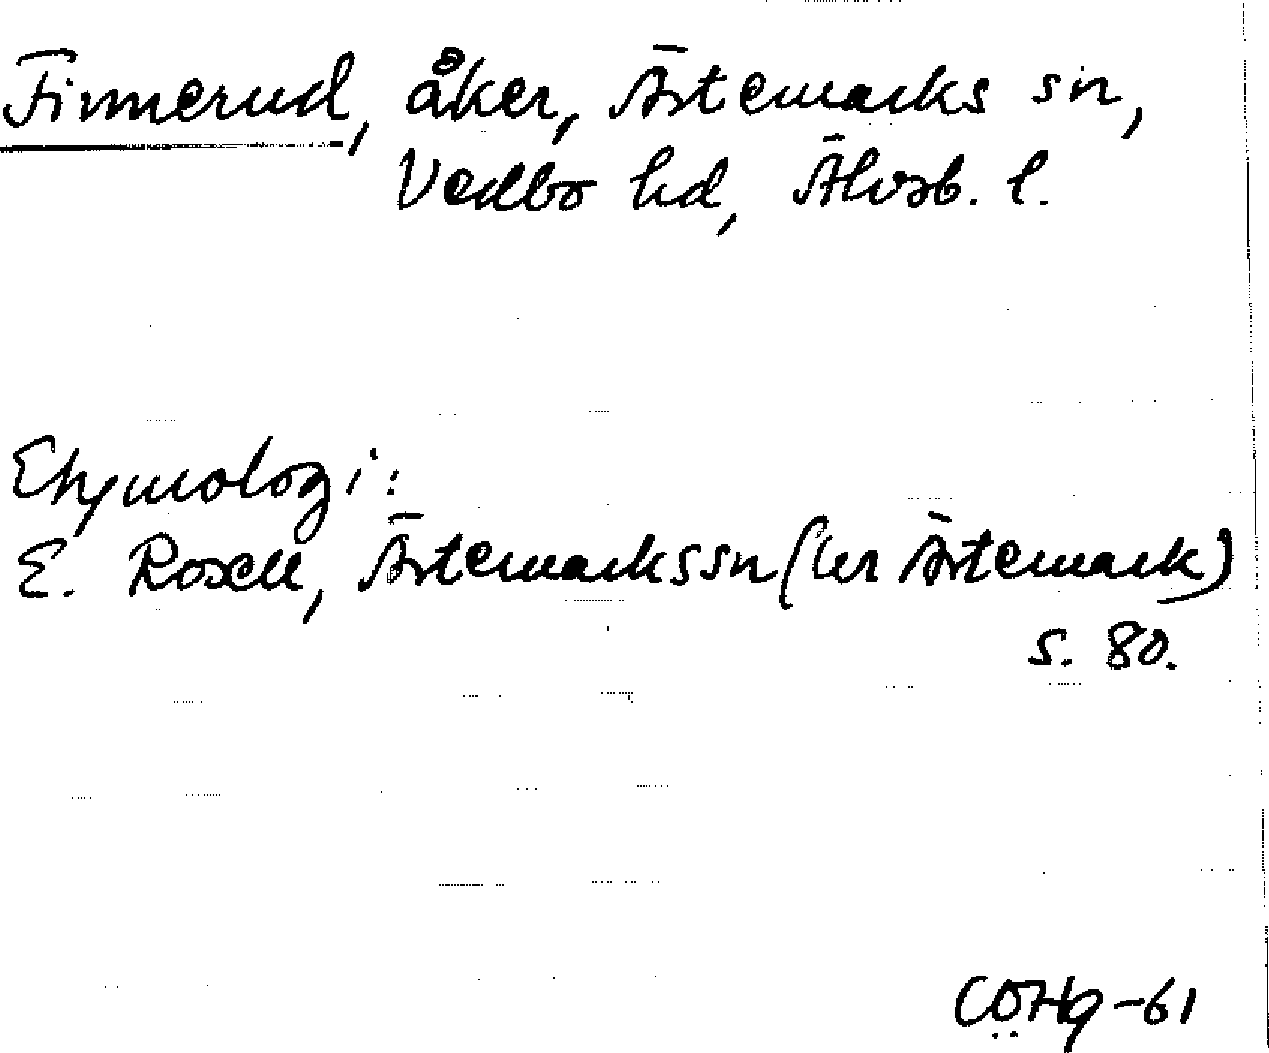 Finnerud, åker, Ärtemarks sn,
Vedbo hd, Älvsb. l.
Etymologi:
E. Rosell, Ärtemarks sn (ur Ärtemark)
s. 80.
CÖHg -61